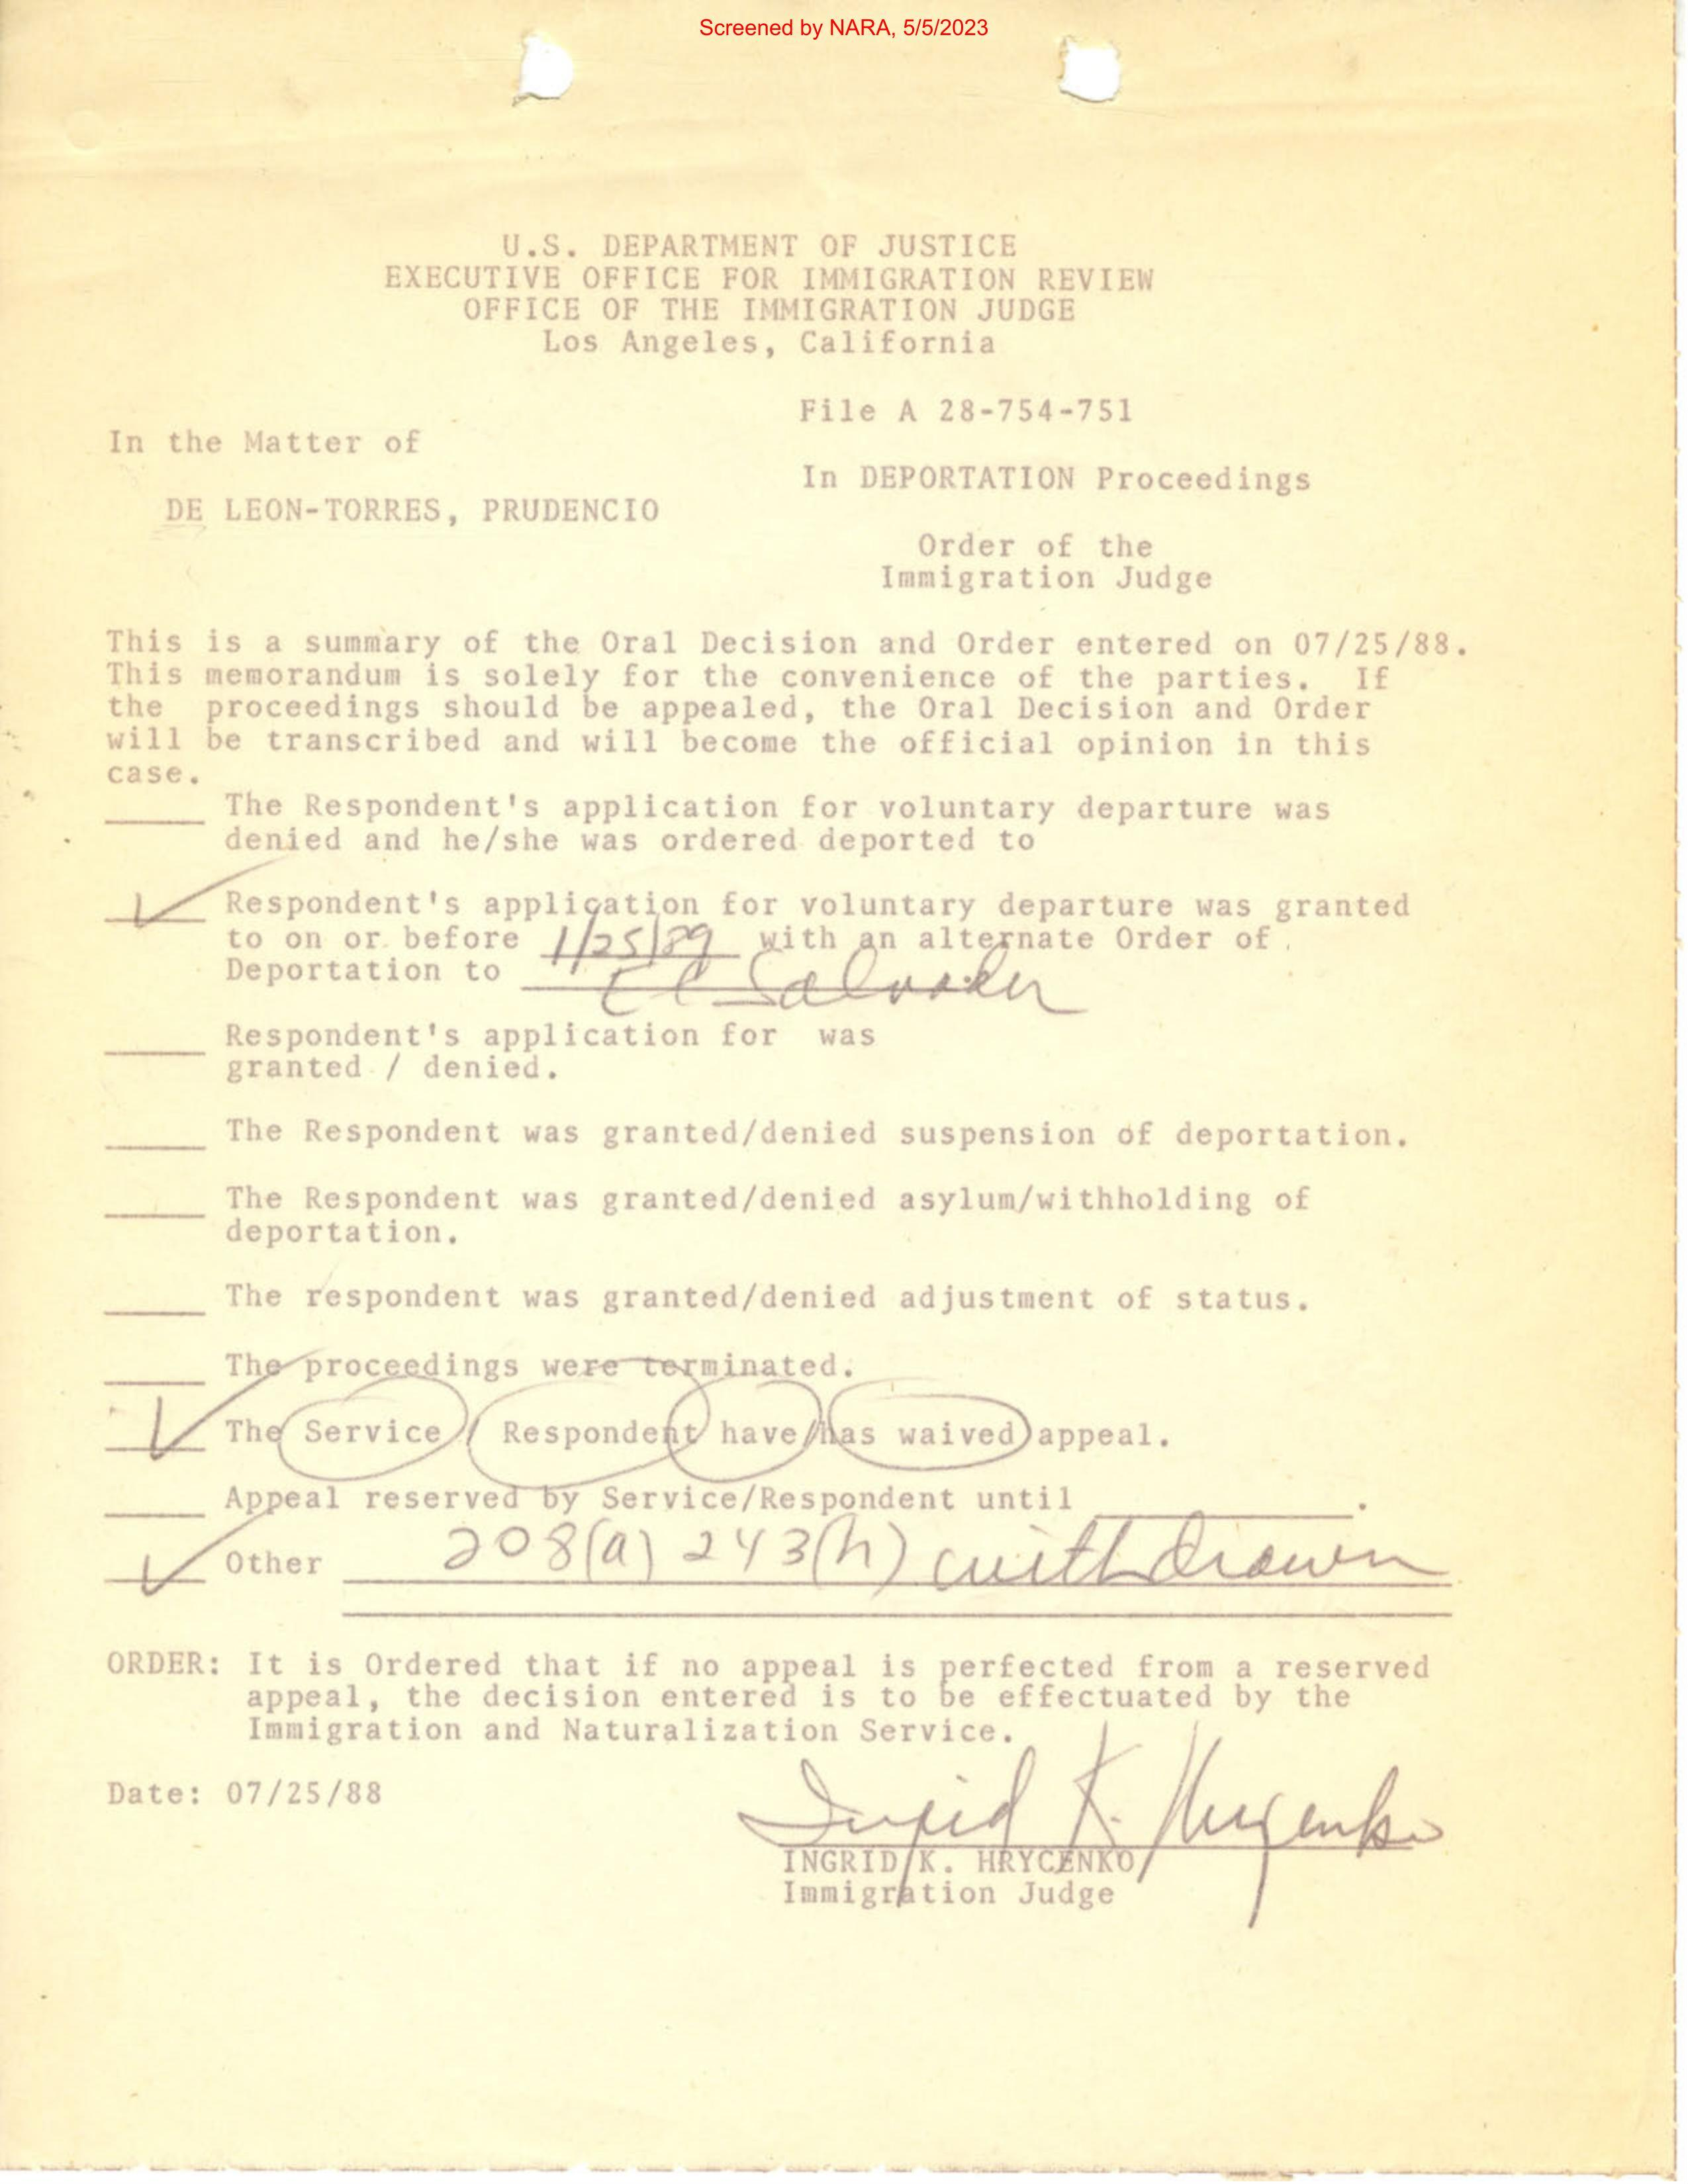 Screened by NARA, 5/5/2023
U.S. DEPARTMENT OF JUSTICE
EXECUTIVE OFFICE FOR IMMIGRATION REVIEW
OFFICE OF THE IMMIGRATION JUDGE
Los Angeles, California
File A 28-754-751
In the Matter of
In DEPORTATION Proceedings
DE LEON-TORRES, PRUDENCIO
Order of the
Immigration Judge
This is a summary of the Oral Decision and Order entered on 07/25/88.
This memorandum is solely for the convenience of the parties. If
the proceedings should be appealed, the Oral Decision and Order
will be transcribed and will become the official opinion in this
case.
The Respondent's application for voluntary departure was
denied and he/she was ordered deported to
Respondent's application for voluntary departure was granted
to on or before 1/25/89 with an alternate Order of
Deportation to El Salvador
Respondent's application for was
granted / denied.
The Respondent was granted/denied suspension of deportation.
The Respondent was granted/denied asylum/withholding of
deportation.
The respondent was granted/denied adjustment of status.
The proceedings were terminated.
The Service / Respondent have/has waived appeal.
Appeal reserved by Service/Respondent until .
Other 208(a) 243(h) withdrawn
ORDER: It is Ordered that if no appeal is perfected from a reserved
appeal, the decision entered is to be effectuated by the
Immigration and Naturalization Service.
Date: 07/25/88
Ingrid K. Hrycenko
INGRID K. HRYCENKO
Immigration Judge